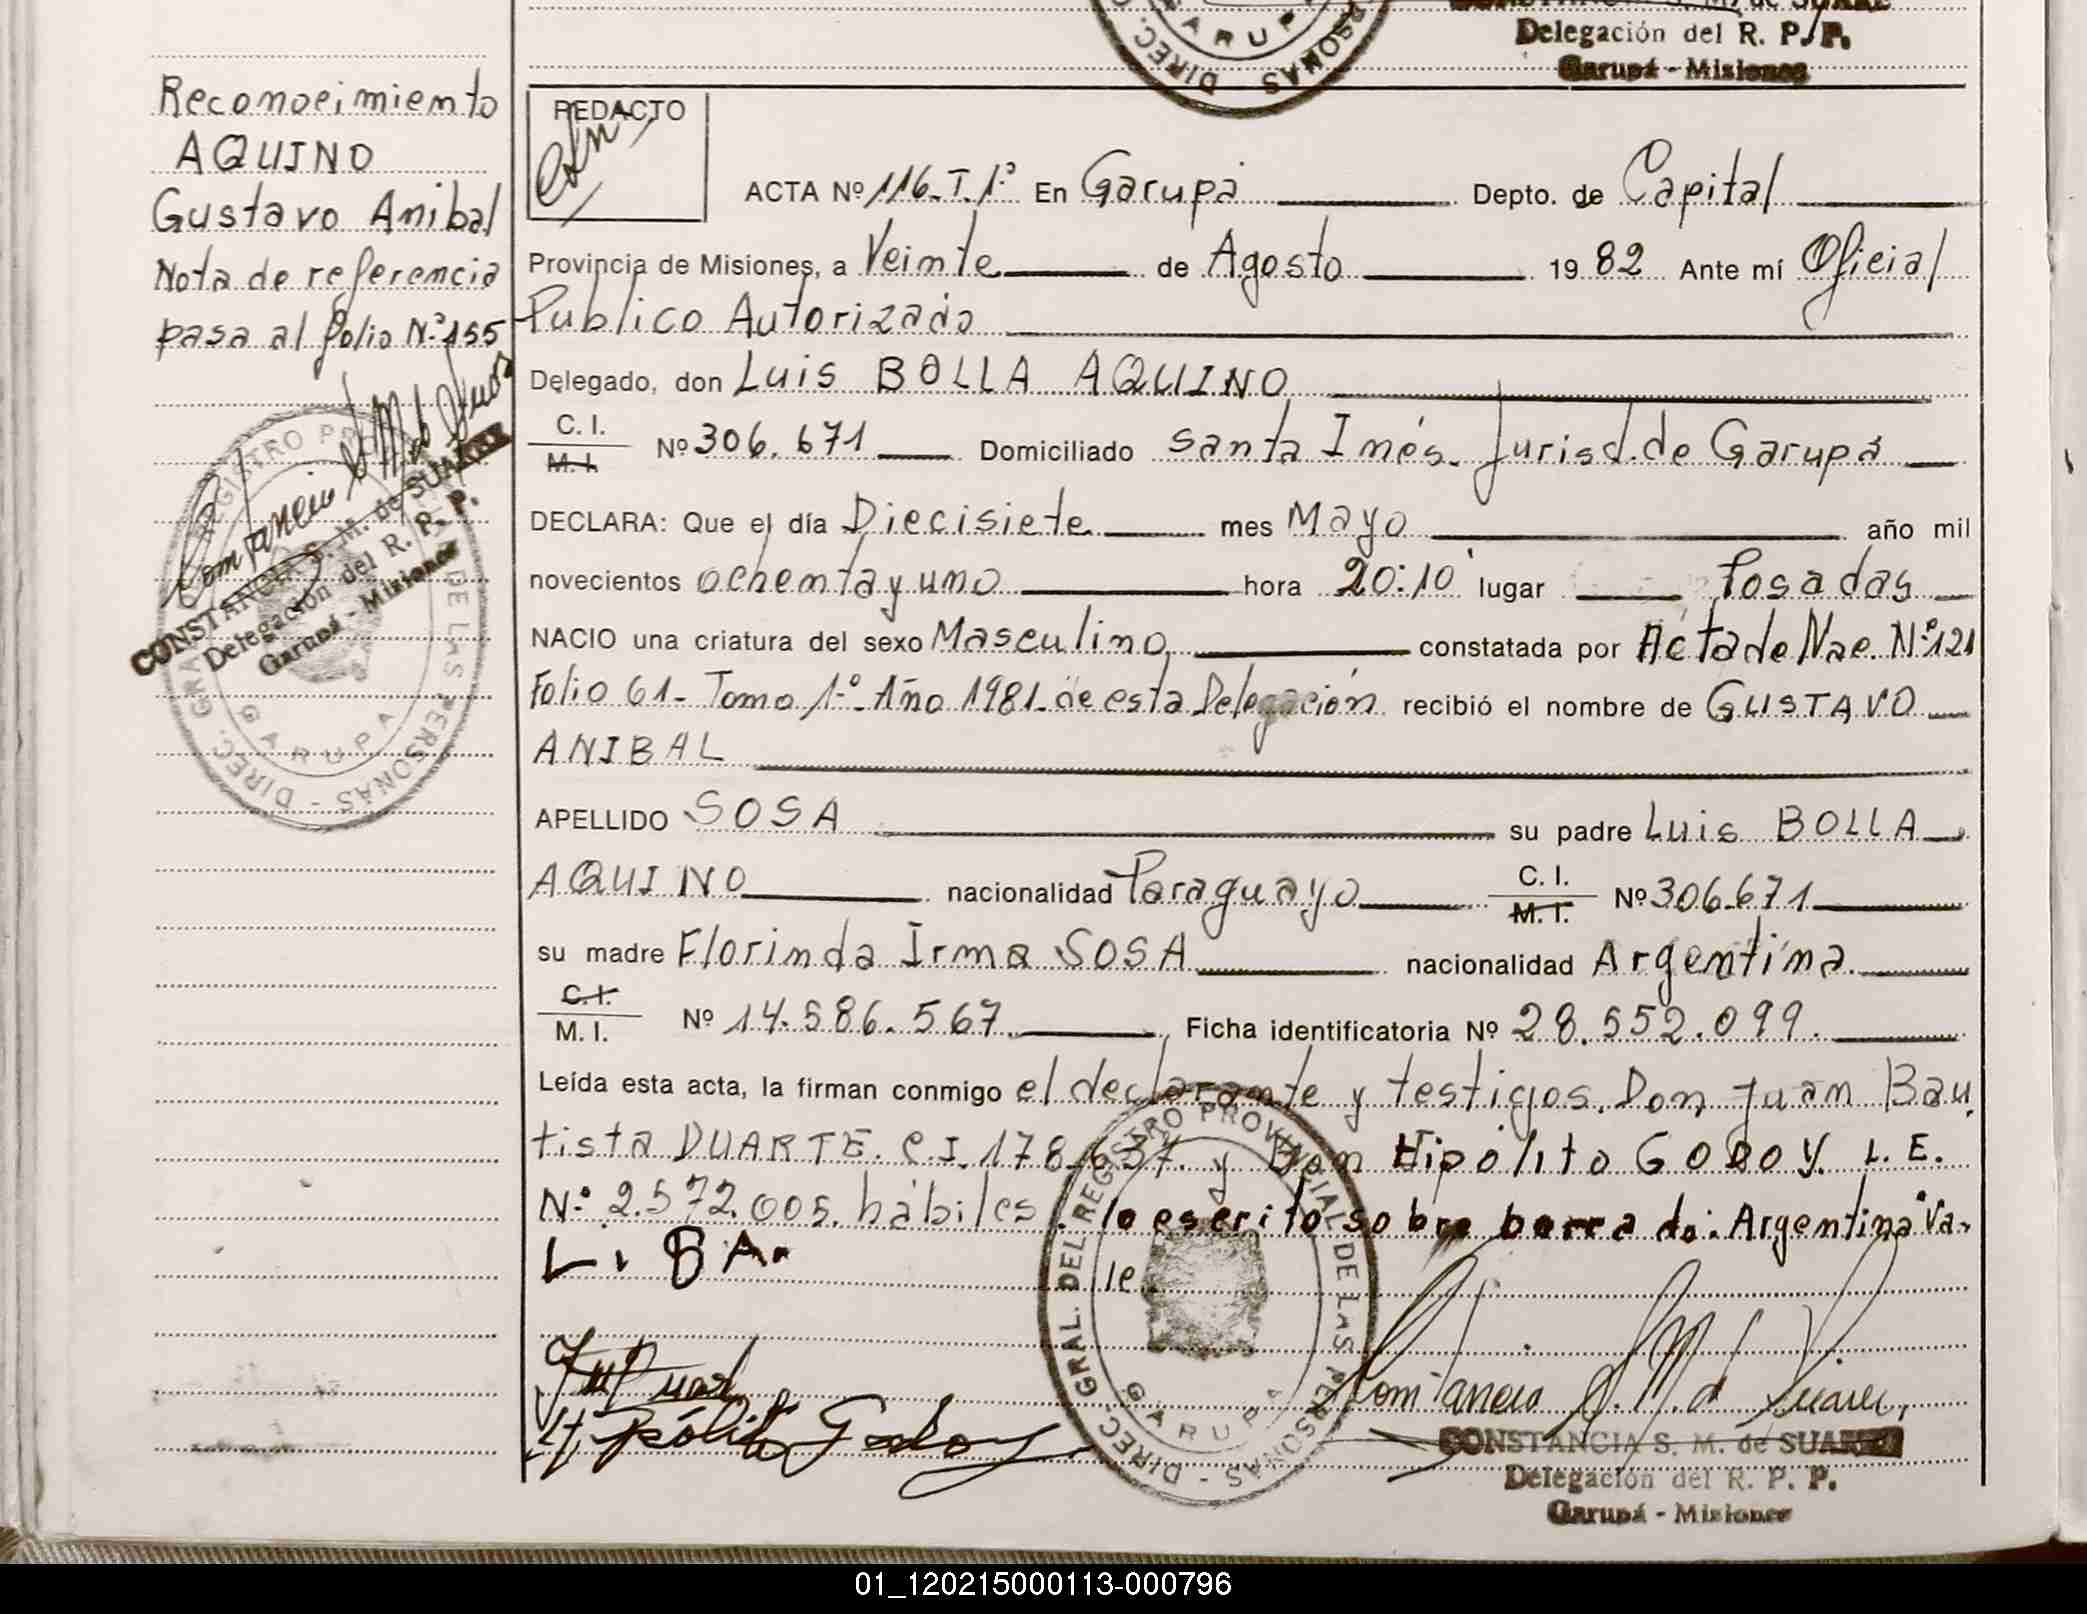 CONSTANCIA S. M. de SUAREZ
Delegación del R. P. P.
Garupá - Misiones
DIREC. PERSONAS
GARUPA
Reconocimiento
AQUINO
Gustavo Anibal
Nota de referencia
pasa al folio N.º 155
CONSTANCIA S. M. de SUAREZ
Delegación del R. P. P.
Garupá - Misiones
DIREC. GRAL. REGISTRO PRO DE LAS PERSONAS
GARUPA
REDACTO
ACTA Nº 116. T. 1.º En Garupá Depto. de Capital
Provincia de Misiones, a Veinte de Agosto 19 82 Ante mí Oficial
Publico Autorizado
Delegado, don Luis BOLLA AQUINO
C. I. M. I. Nº 306.671 Domiciliado Santa Inés. Jurisd. de Garupá
DECLARA: Que el día Diecisiete mes Mayo año mil
novecientos ochenta y uno hora 20:10 lugar Posadas
NACIO una criatura del sexo Masculino constatada por Acta de Nac. Nº 121
Folio 61- Tomo 1.º- Año 1981- de esta Delegación recibió el nombre de GUSTAVO
ANIBAL
APELLIDO SOSA su padre Luis BOLLA
AQUINO nacionalidad Paraguayo C. I. M. I. Nº 306.671
su madre Florinda Irma SOSA nacionalidad Argentina
C. I. M. I. Nº 14.586.567 Ficha identificatoria Nº 28.552.099.
Leída esta acta, la firman conmigo el declarante y testigos. Don Juan Bau
tista DUARTE. C.I. 178.637. y Don Hipólito GODOY. L. E.
Nº 2.572.005. hábiles. lo escrito sobre borrado: Argentina Va-
L. B A. le.
DIREC. GRAL. DEL REGISTRO PROVINCIAL DE LAS PERSONAS
GARUPA
Hipólito Godoy
Constancia S. M. d Suarez
CONSTANCIA S. M. de SUAREZ
Delegación del R. P. P.
Garupá - Misiones
01_120215000113-000796